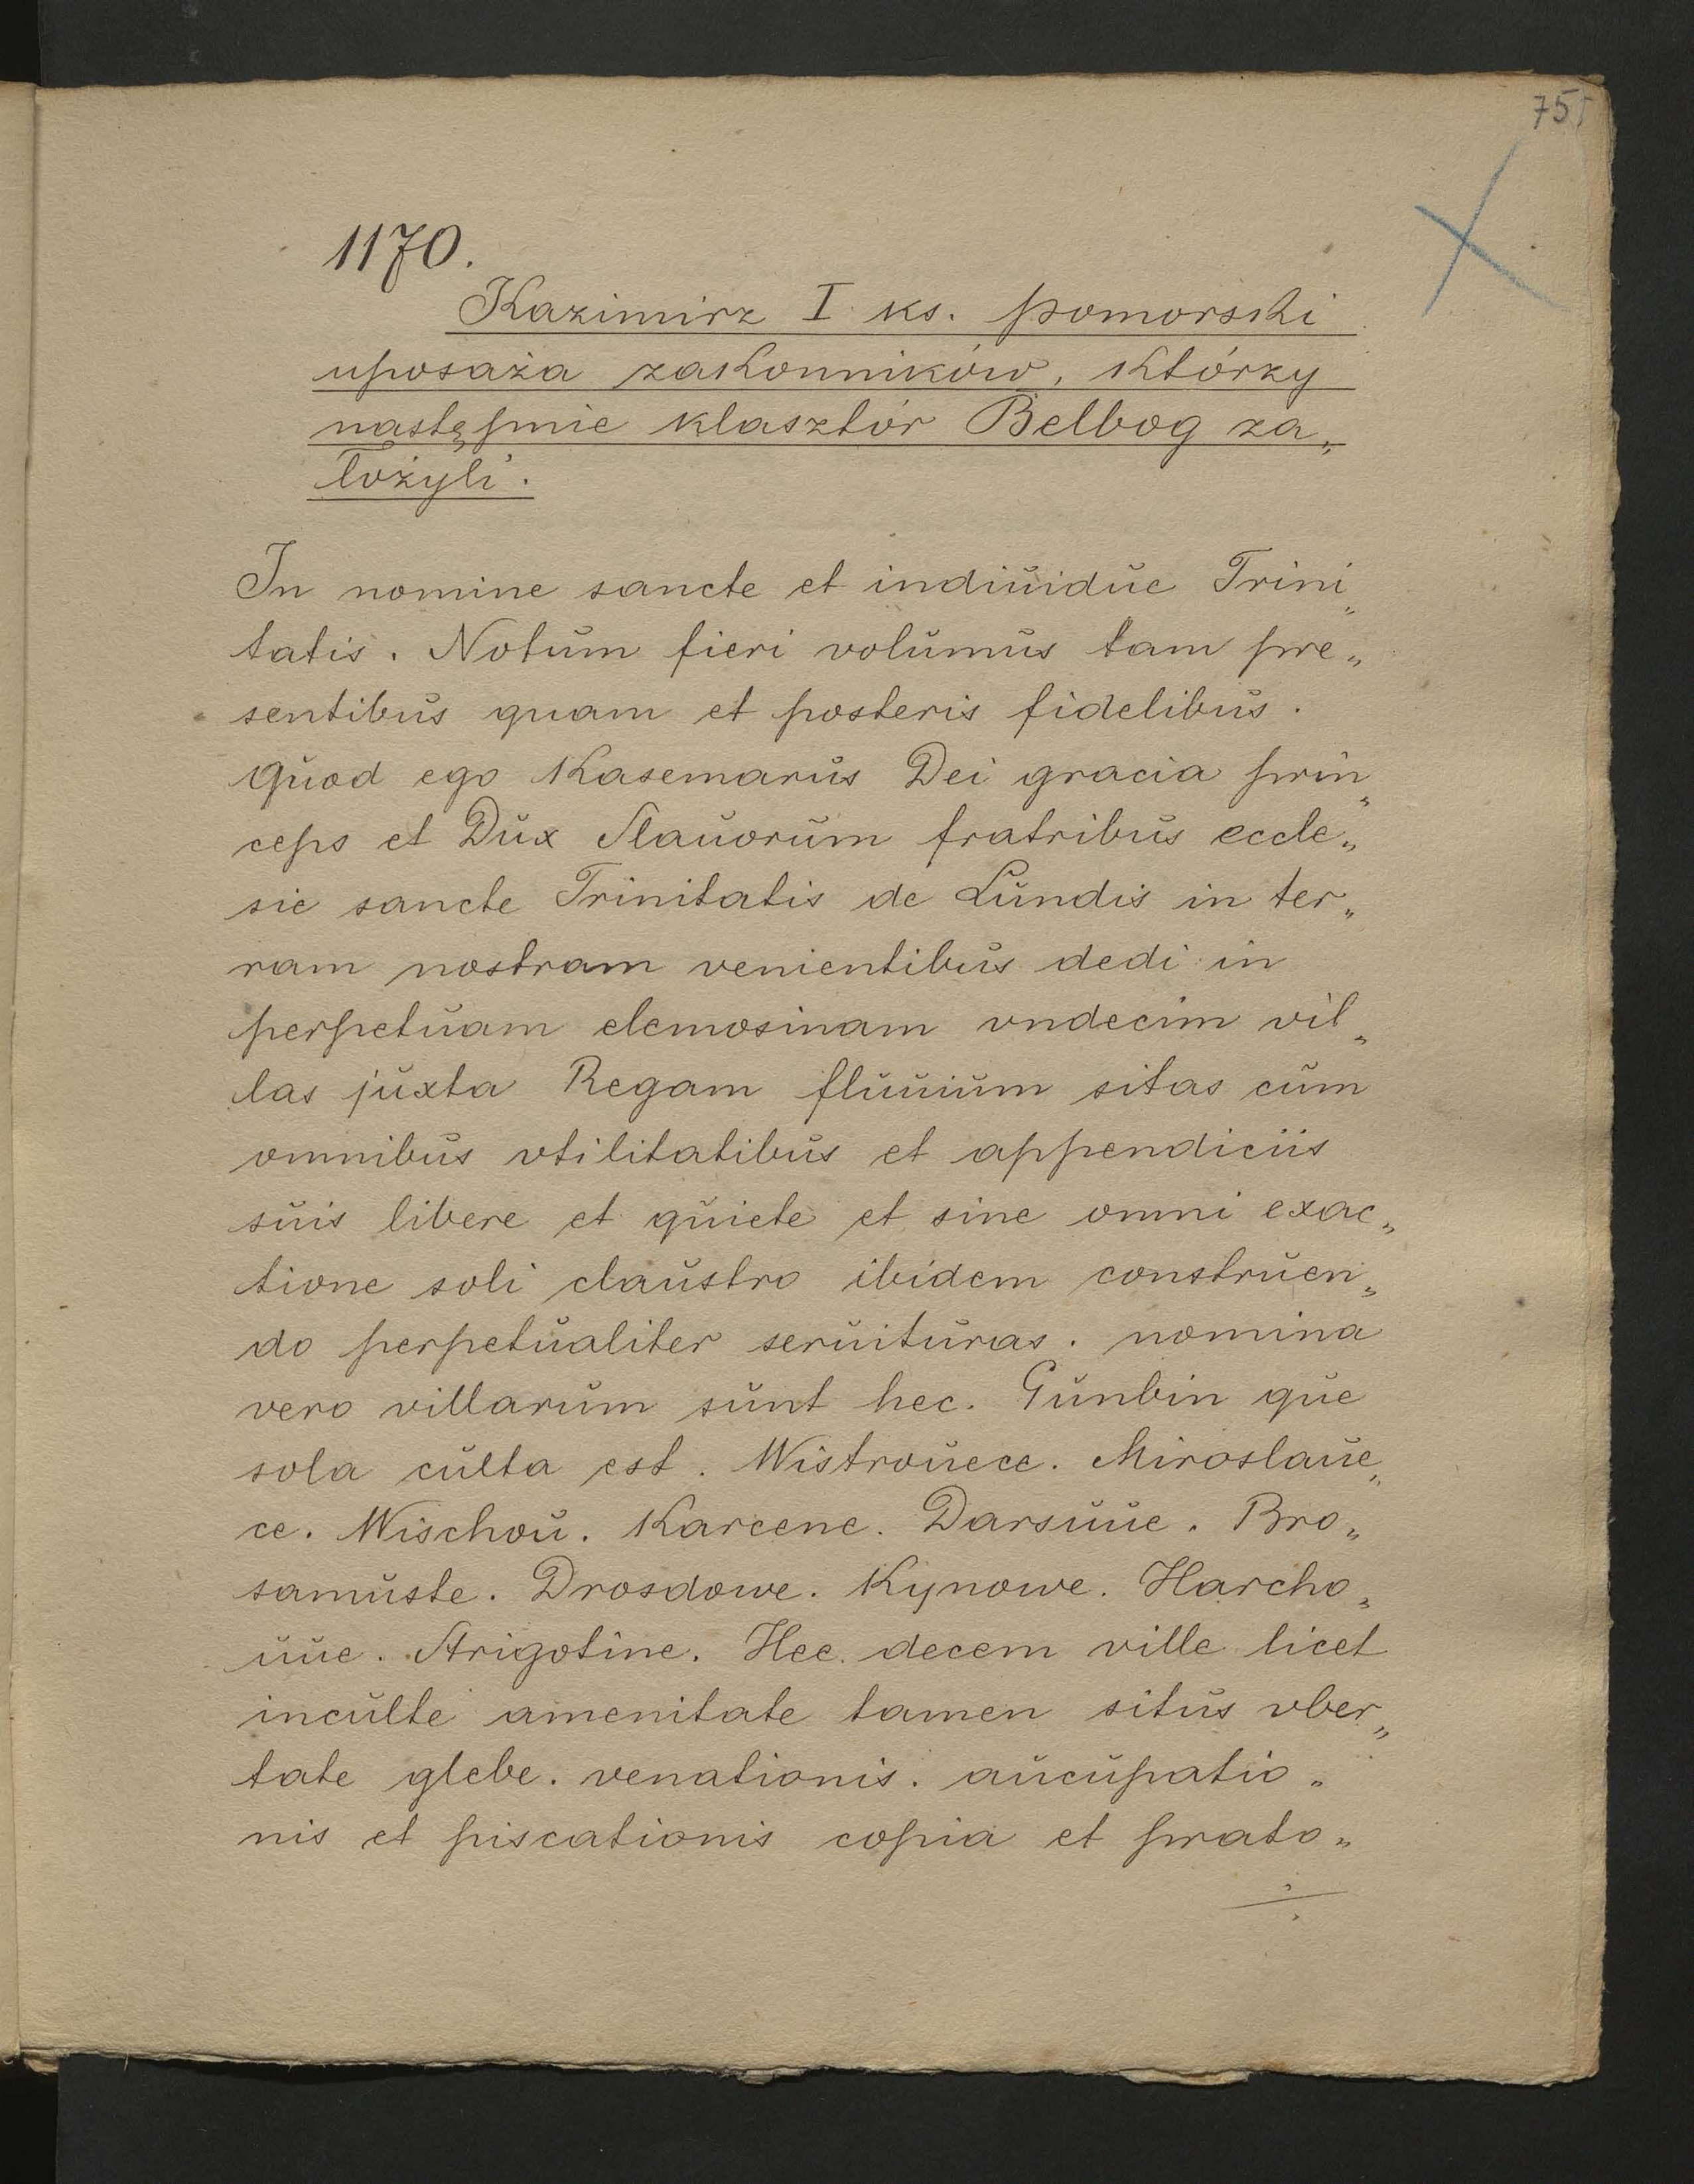 75
1170.
Kazimirz I ks. pomorski
uposaża zakonników, którzy
następnie klasztór Belbog za„
łożyli.
In nomine sancte et indiuidue Trini„
tatis. Notum fieri volumus tam pre„
sentibus quam et posteris fidelibus.
Quod ego Kasemarus Dei gracia prin„
ceps et Dux Slauorum fratribus eccle„
sie sancte Trinitatis de Lundis in ter„
ram nostram venientibus dedi in
perpetuam elemosinam vndecim vil„
las juxta Regam fluuium sitas cum
omnibus vtilitatibus et appendiciis
suis libere et quiete et sine omni exac„
tione soli claustro ibidem construen„
do perpetualiter seruituras. nomina
vero villarum sunt hec. Gunbin que
sola culta est. Wistrouece. Miroslaue„
ce. Wischou. Karcene. Darsuue. Bro„
samuste. Drosdowe. Kynowe. Harcho„
uue. Strigotine. Hec decem ville licet
inculte amenitate tamen situs vber„
tate glebe. venationis. aucupatio„
nis et piscationis copia et prato„